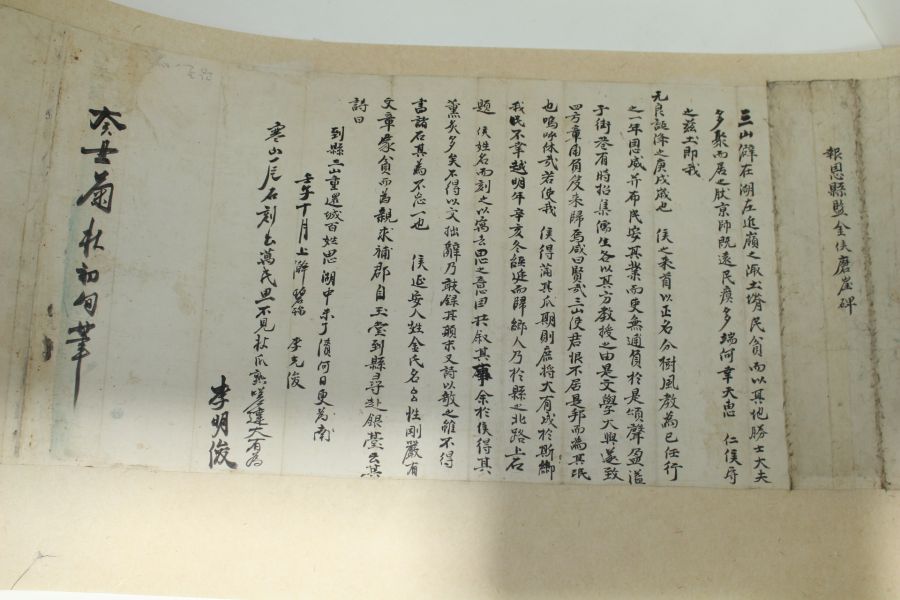 報恩縣監金侯磨崖碑
三山僻在湖左近嶺之漱土塉民貧而以其地勝士大夫
多聚而居之肰京師既遠民瘼多端何幸天恩 仁侯府
之兹土即我
元良誕降之庚戌歲也 侯之来首以正名分樹風教為己任行
之一年恩威并布民安其業而更無逋負於是頌聲盈溢
于街巷有時招集儒生各以其方教授之由是文學大興遂致
四方章甫負笈来歸焉咸曰賢哉三山使君恨不居是邦而為其氓
也嗚呼休哉若使我 侯得滿其瓜期則庶將大有成於斯鄉
我民不幸越明年辛亥冬誣逝而歸鄉人乃於縣之北路上石
題 侯姓名而刻之以寓去思之意因共叙其事余於侯得其
薰炙多矣不得以文拙辭乃敢錄其顛末又詩以敬之雖不得
書諸石其為不忘一也 侯延安人姓金氏名 性剛嚴有
文章家貧而為親求補郡自玉堂到縣尋赴銀臺云其
詩曰
到縣三山重還城百姓思湖中未了債何日更為南
壬午十月上澣 李光俊
寒山一片石刻出萬民思不見秋瓜熟嗟建大有為
李明俊
癸丑菊秋初旬筆